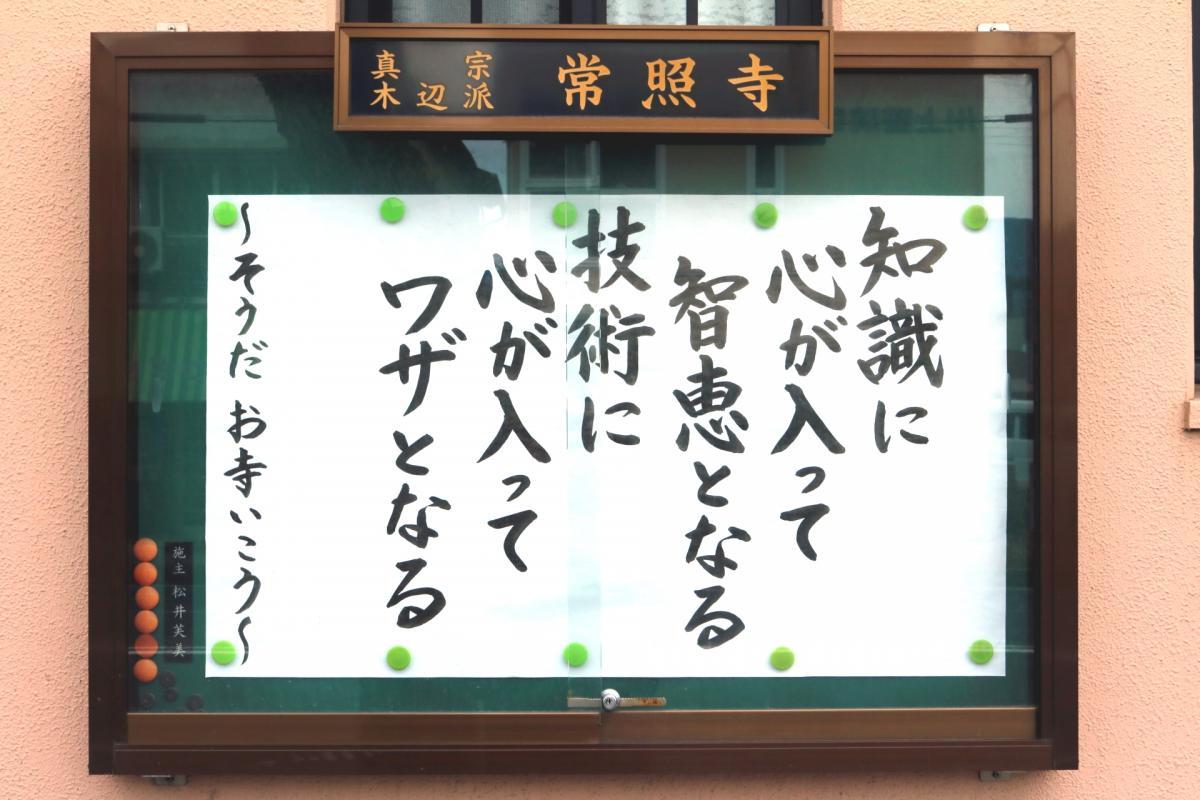 真宗
木辺派
常照寺
知識に
心が入って
智恵となる
技術に
心が入って
ワザとなる
〜そうだ お寺いこう〜
施主 松井芙美